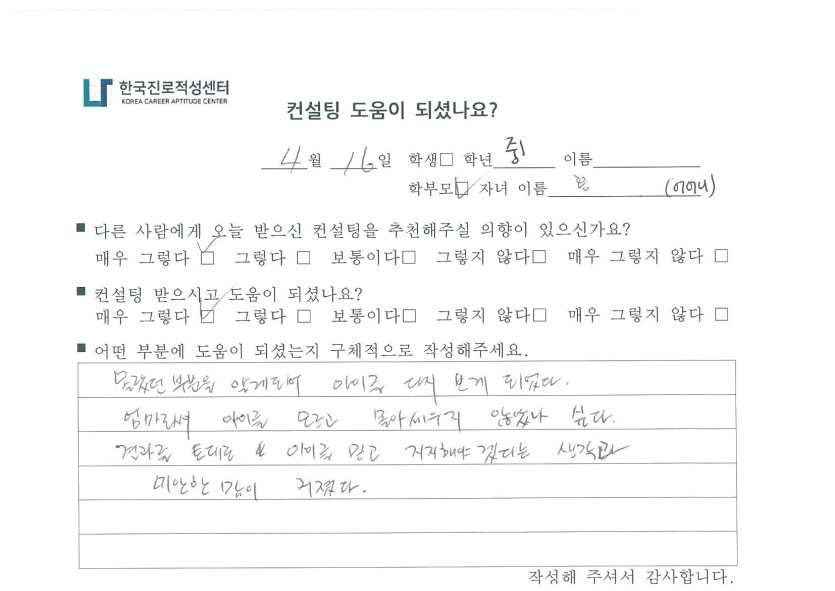 한국진로적성센터
KOREA CAREER APTITUDE CENTER
컨설팅 도움이 되셨나요?
4월 16일 학생□ 학년 중1 이름
학부모☑ 자녀 이름 (어머니)
■ 다른 사람에게 오늘 받으신 컨설팅을 추천해주실 의향이 있으신가요?
매우 그렇다 ☑ 그렇다 □ 보통이다□ 그렇지 않다□ 매우 그렇지 않다 □
■ 컨설팅 받으시고 도움이 되셨나요?
매우 그렇다 ☑ 그렇다 □ 보통이다□ 그렇지 않다□ 매우 그렇지 않다 □
■ 어떤 부분에 도움이 되셨는지 구체적으로 작성해주세요.
몰랐던 부분을 알게되어 아이를 다시 보게 되었다.
엄마라며 아이를 모르고 몰아세우지 않았나 싶다.
결과를 토대로 아이를 믿고 지지해야겠다는 생각과
미안한 맘이 커졌다.
작성해 주셔서 감사합니다.